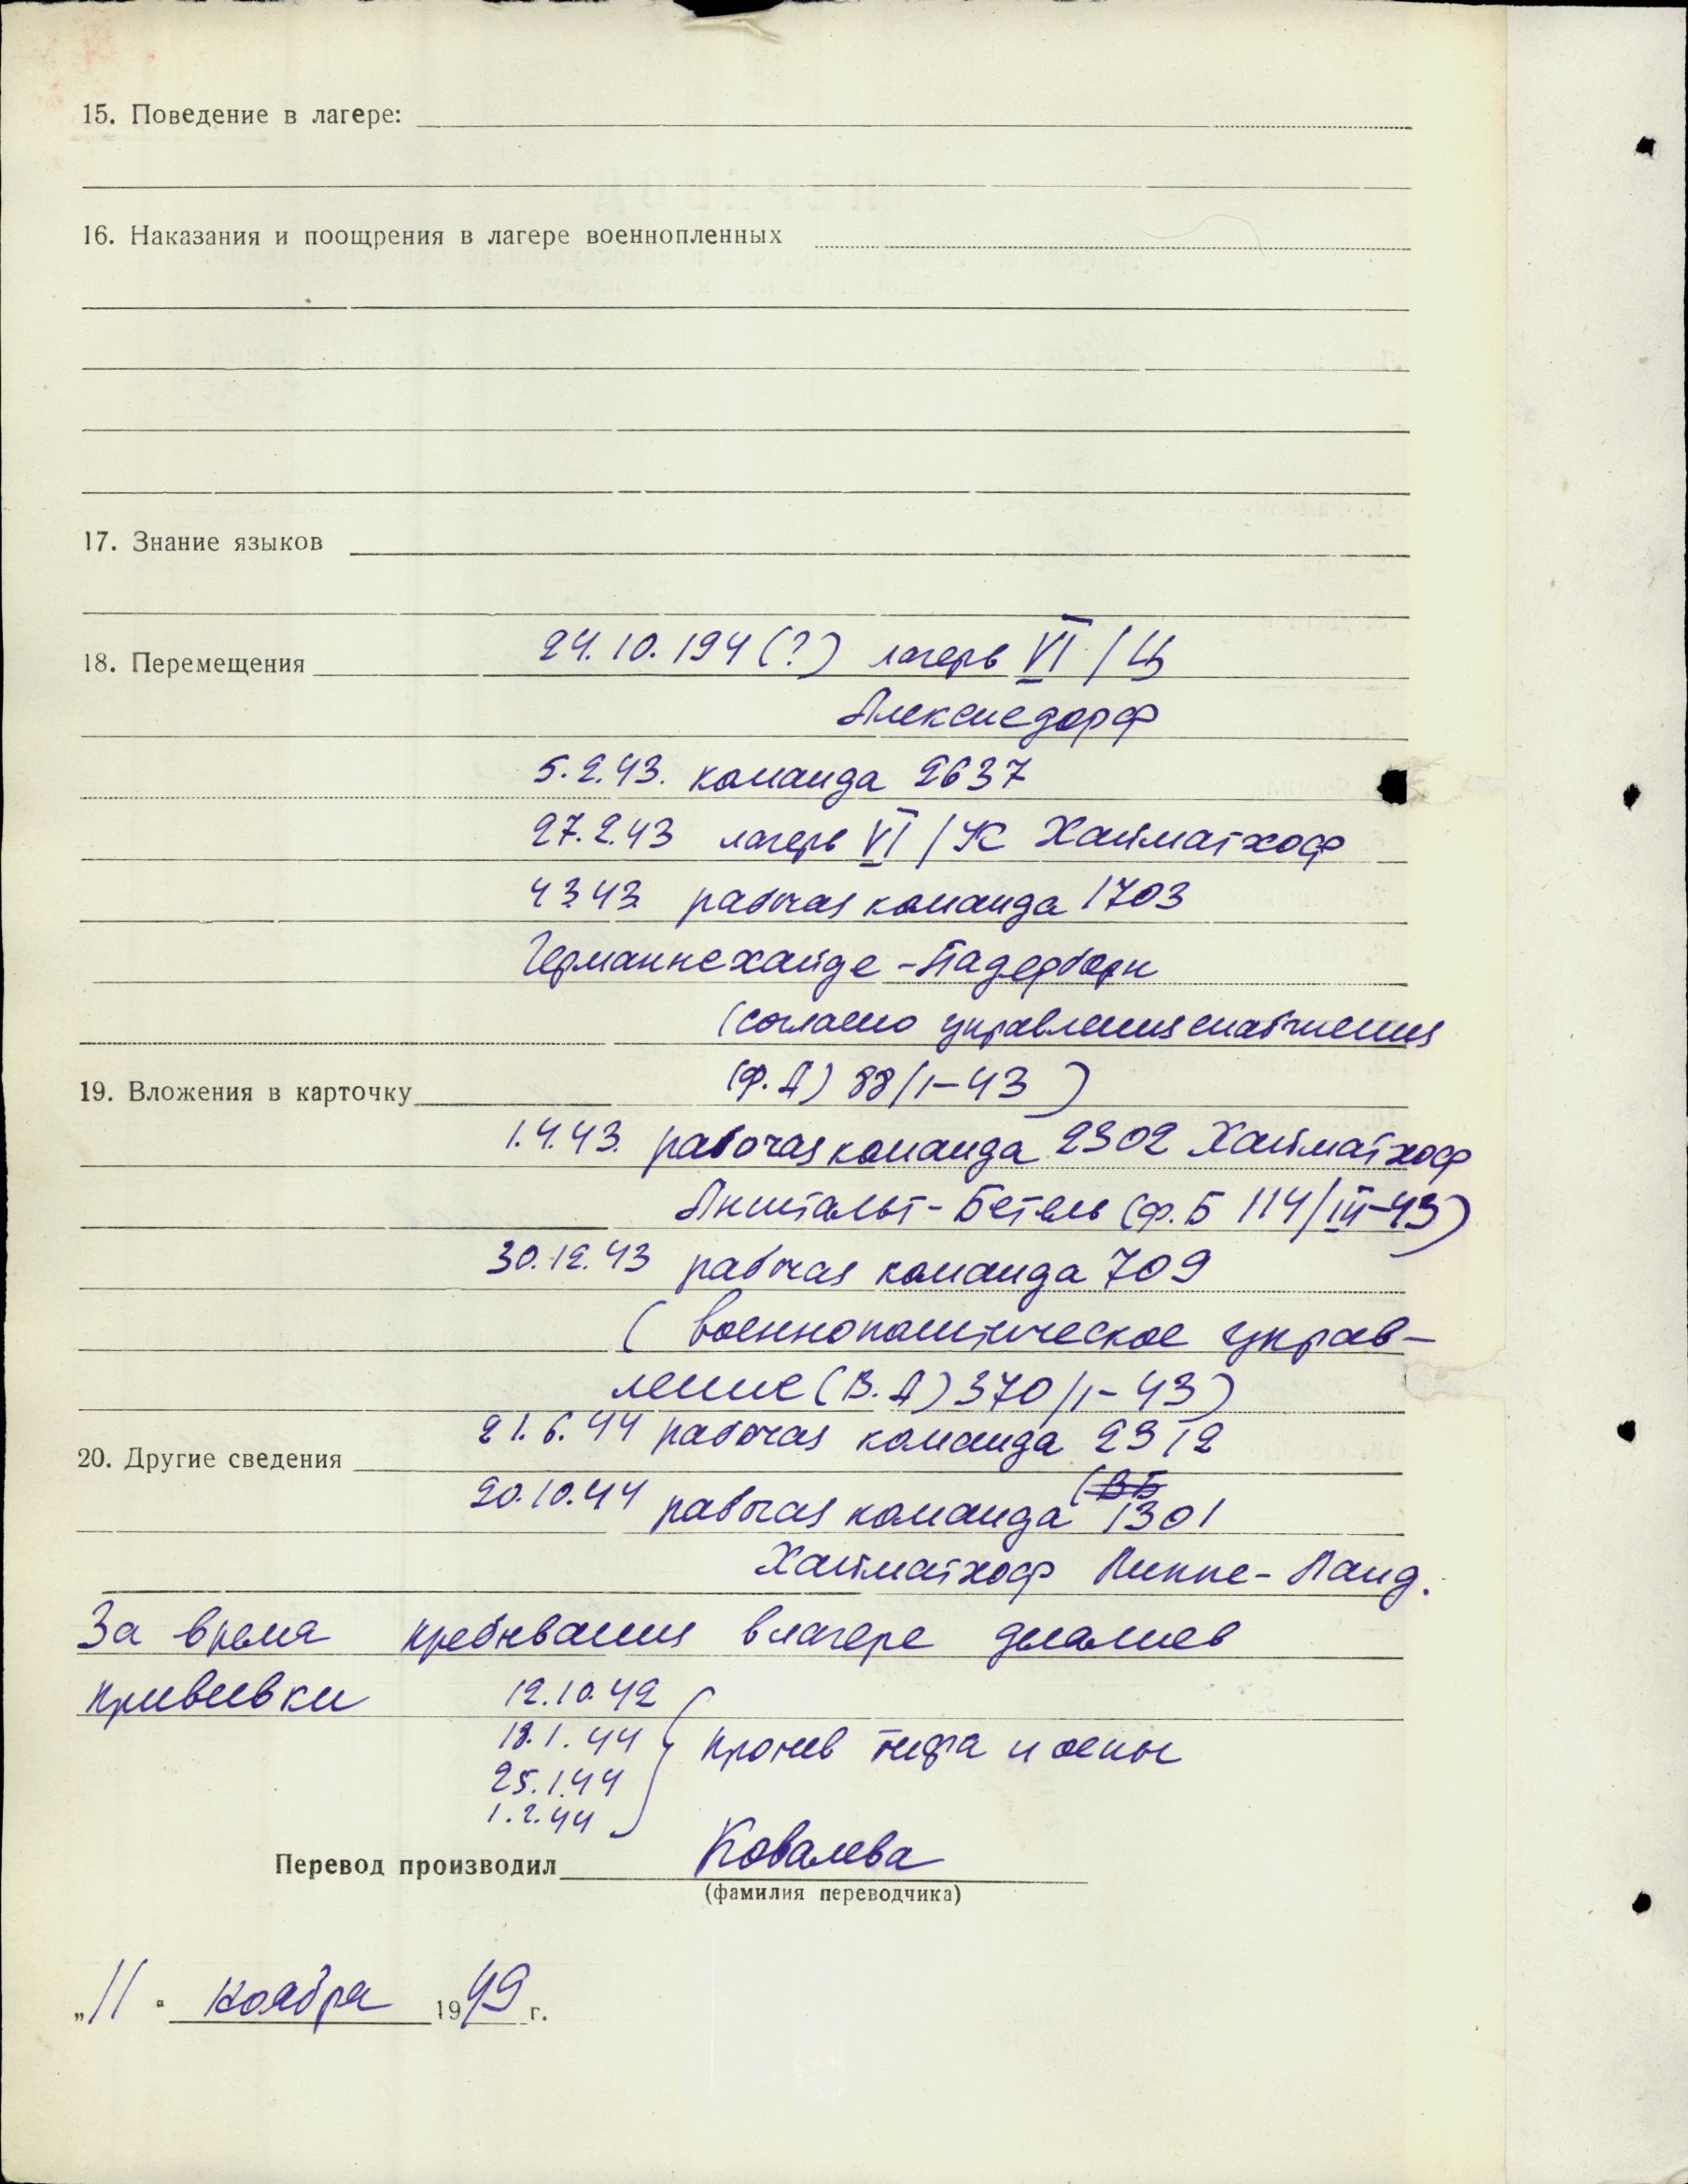 15. Поведение в лагере:
16. Наказания и поощрения в лагере военнопленных
17. Знание языков
18. Перемещения 24.10.194(?) лагерь VI/Ц
Алексисдорф
5.2.43. команда 2637
27.2.43 лагерь VI/К Хайматхоф
4.3.43 рабочая команда 1703
Германнехайде-Падерборн
(согласно управления снабжения
19. Вложения в карточку (Ф.А) 88/I-43)
1.4.43. рабочая команда 2302 Хайматхоф
Анштальт-Бетель (ф.Б 114/III-43)
30.12.43 рабочая команда 709
(военнополитическое управ-
ление (В.А) 370/I-43)
20. Другие сведения 21.6.44 рабочая команда 2312
(ВБ
20.10.44 рабочая команда 1301
Хайматхоф Липпе-Ланд.
За время пребывания в лагере делались
прививки 12.10.42
18.1.44 против тифа и оспы
25.1.44
1.2.44
Перевод производил Ковалева
(фамилия переводчика)
„11“ ноября 1949 г.